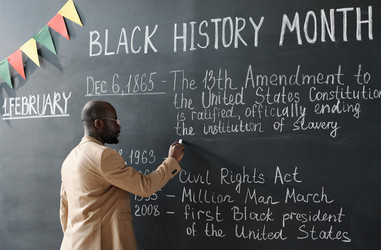 BLACK HISTORY MONTH
1 FEBRUARY
Dec 6, 1865 - The 13th Amendment to
the United States Constitution
is ratified, officially ending
the institution of slavery
1963
Civil Rights Act
1995 - Million Man March
2008 - first Black president
of the United States